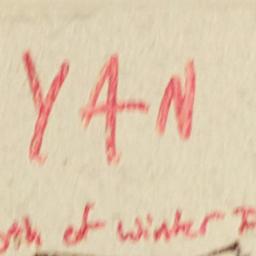 YAN
of winter